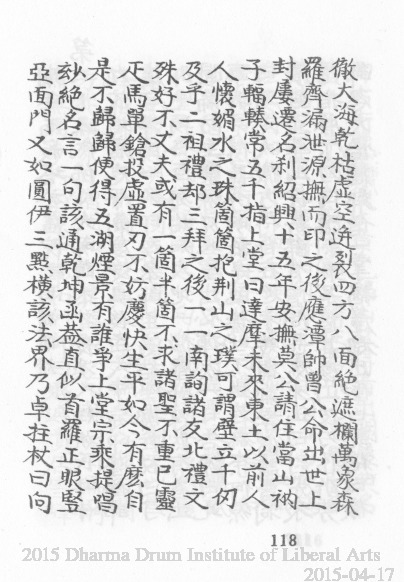 徹大海乾枯虛空迸裂四方八面絕遮欄萬象森
羅齊漏泄源撫而印之後應漳帥曾公命出世上
封屢遷名利紹興十五年安撫莫公請住當山衲
子輻輳常五千指上堂曰達摩未來東土以前人
人懷媚水之珠箇箇抱荊山之璞可謂壁立千仞
及乎二祖禮却三拜之後一一南詢諸友北禮文
殊好不丈夫或有一箇半箇不求諸聖不重已靈
疋馬單鎗投虛置刃不妨慶快生平如今有麼自
是不歸歸便得五湖煙景有誰爭上堂宗乘提唱
玅絕名言一句該通乾坤函蓋直似首羅正眼竪
亞面門又如圓伊三點橫該法界乃卓拄杖曰向
118
2015 Dharma Drum Institute of Liberal Arts
2015-04-17